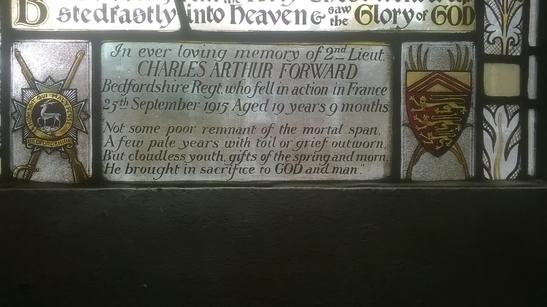 stedfastly into Heaven & saw the Glory of GOD
In ever loving memory of 2nd Lieut.
CHARLES ARTHUR FORWARD
Bedfordshire Regt. who fell in action in France
25th September 1915 Aged 19 years 9 months
Not some poor remnant of the mortal span,
A few pale years with toil or grief outworn,
But cloudless youth, gifts of the spring and morn,
He brought in sacrifice to GOD and man."
BEDFORDSHIRE